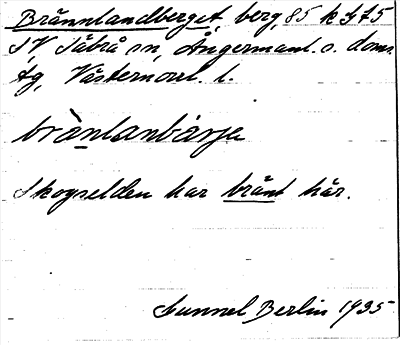 Brännlandberget, berg, 85 k f, 75
S, V Säbrå sn, Ångermanl. s. doms.
fg, Västernorrl. l.
brànlanbárja
Skogselden har bränt här.
Gunnel Berlin 1935